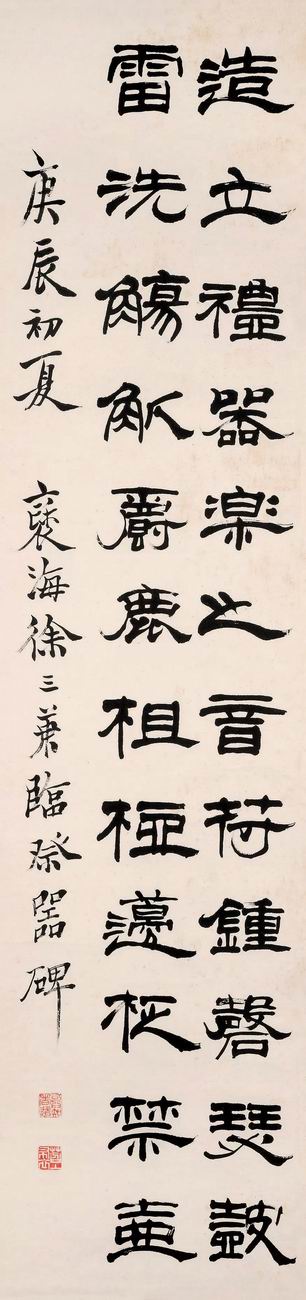 造立禮器楽之音苻鍾磬瑟皷
雷洗觴觚爵鹿柤梪籩柉禁壺
庚辰初夏 褎海徐三庚臨祭器碑